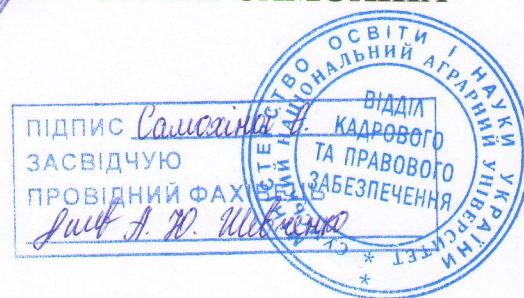 ПІДПИС Самохіної
ЗАСВІДЧУЮ
ПРОВІДНИЙ ФАХІВЕЦЬ
А. Ю. Шевченко
МІНІСТЕРСТВО ОСВІТИ І НАУКИ УКРАЇНИ
НАЦІОНАЛЬНИЙ АГРАРНИЙ УНІВЕРСИТЕТ
ВІДДІЛ
КАДРОВОГО
ТА ПРАВОВОГО
ЗАБЕЗПЕЧЕННЯ